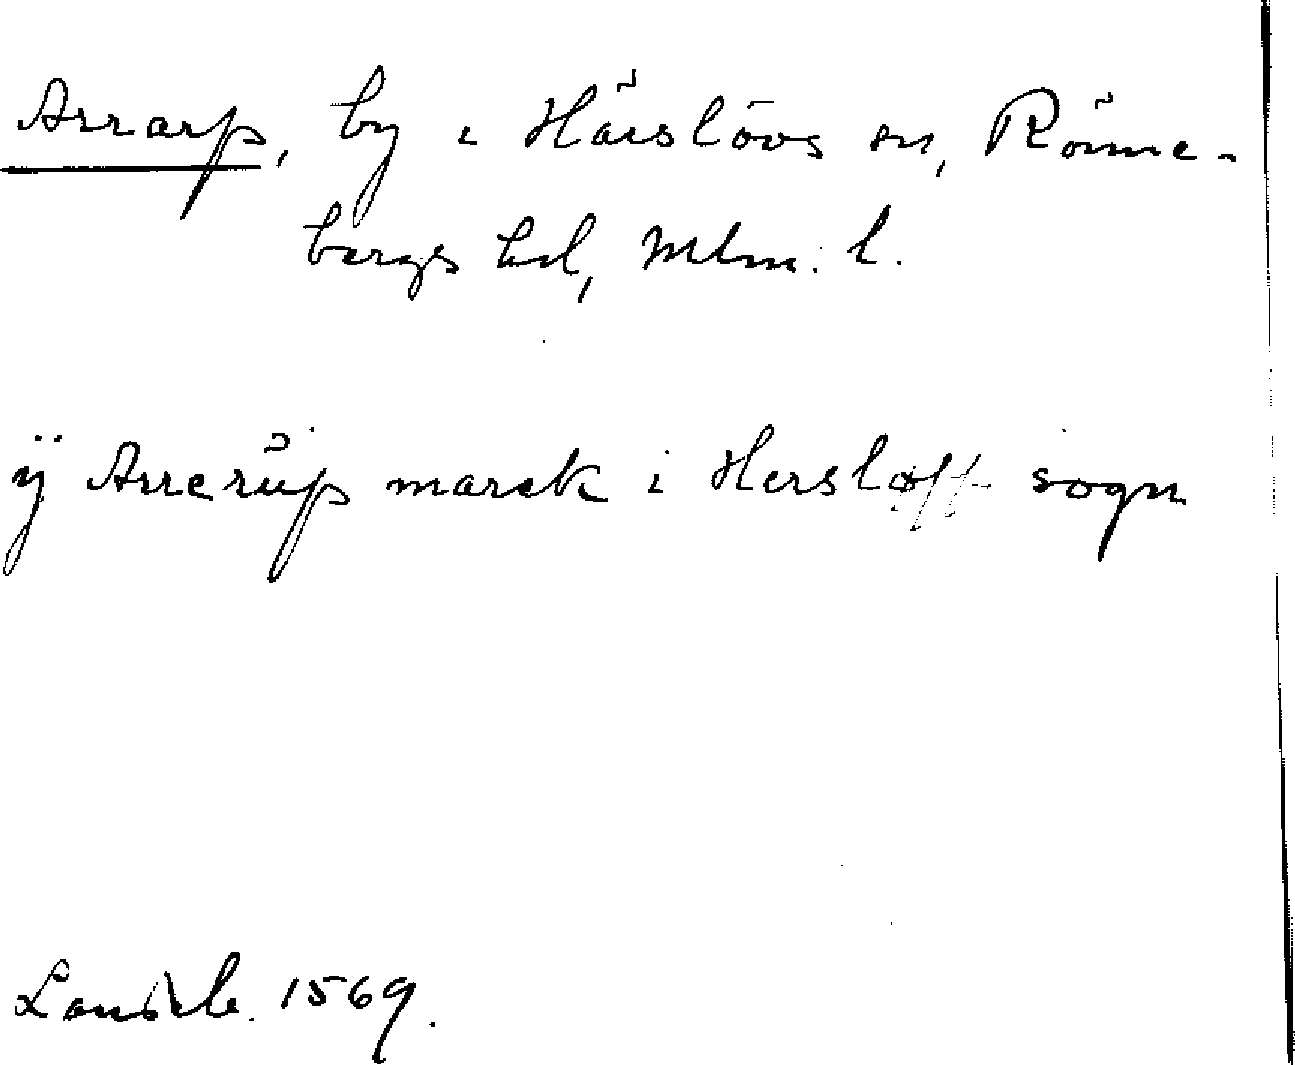 Arrarp, by i Härslövs sn, Rönne-
bergs hd, Mlm. l.
ÿ Arrerup marck i Hersløff sogn
Landeb. 1569.